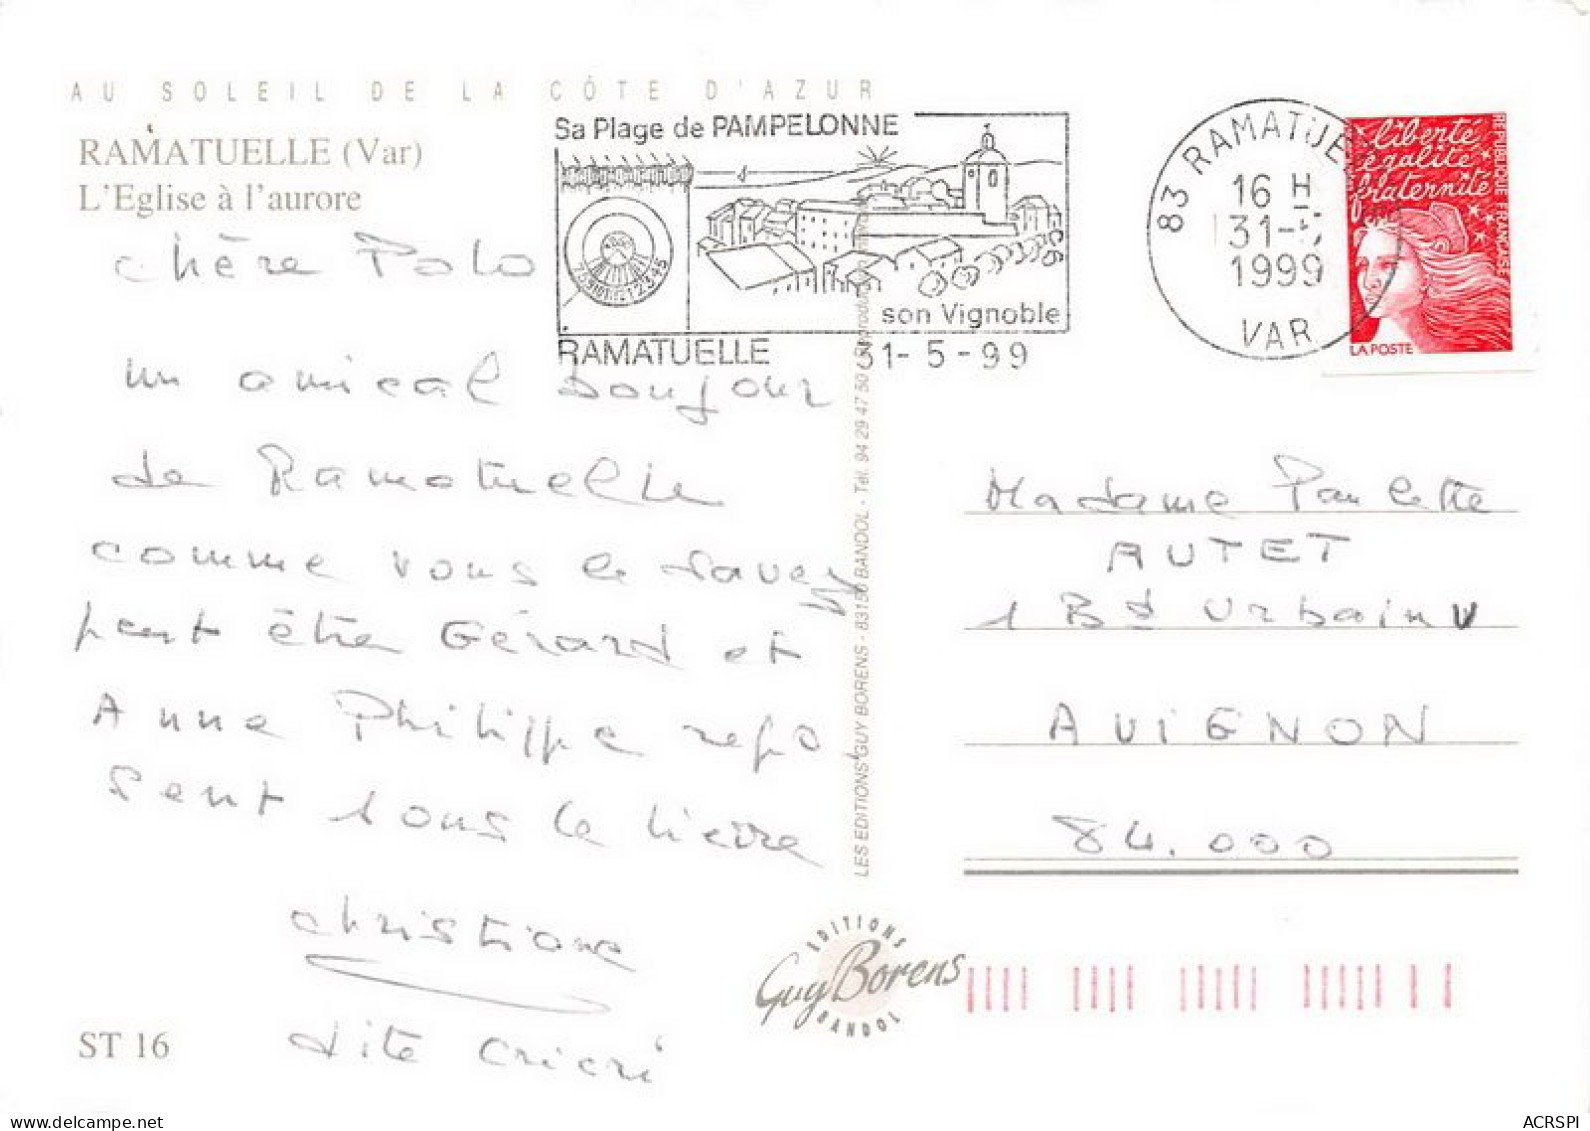 AU SOLEIL DE LA CÔTE D'AZUR
RAMATUELLE (Var)
L'Eglise à l'aurore
Sa Plage de PAMPELONNE
son Vignoble
RAMATUELLE 31-5-99
83 RAMATUE
16 H
31-5
1999
VAR
liberté
égalité
fraternité
REPUBLIQUE FRANÇAISE
LA POSTE
chère Polo
un amical bonjour
de Ramatuelle
comme vous le savez
peut être Gérard et
Anne Philippe repo
sent sous le lierre
Christiane
dite Cricri
ST 16
LES EDITIONS GUY BORENS - 83150 BANDOL - Tél. 94 29 47 50 - Reproduction
Madame Paulette
AUTET
1 Bd Urbain V
AVIGNON
84.000
EDITIONS
Guy Borens
BANDOL
delcampe.net
ACRSPI